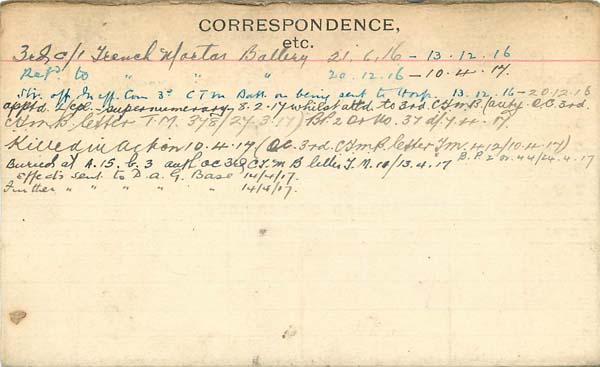 CORRESPONDENCE,
etc.
3rd C/1 Trench Mortar Battery 21.6.16 - 13.12.16
Retd. to " " " 20.12.16 - 10.4.17.
Str. off Com 3d C T M Batt. on being sent to Hosp. 13.12.16 - 20.12.16
apptd. L/Cpl. supernumerary 8.2.17 whilst attd. to 3rd C.T.M.B. (auty. O.C. 3rd.
C.T.M.B. letter T.M. 375/27.3.17) Pt. 2 Or No. 37 d/7.4.17.
Killed in action 10.4.17 (O.C. 3rd. C.T.M.B. letter T.M. 4/12/10.4.17)
Buried at A.15.b.3 auth OC 3rd C T. M B letter T.M. 10/13.4.17 24.4.17
Effects sent to D.A.G. Base 14/4/17.
Further " " " " " 14/4/17.